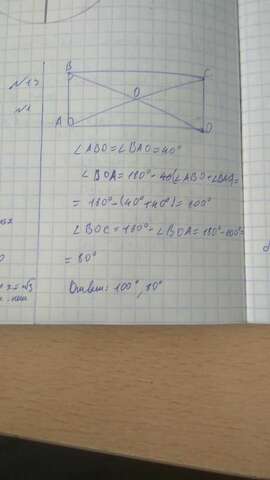 B
C
N13
O
N1
A
D
∠ABO=∠BAO=40°
∠BOA=180°-(∠ABO+∠BAO)=
=180°-(40°+40°)=100°
∠BOC=180°-∠BOA=180°-100°=
=80°
Ответ: 100°, 80°